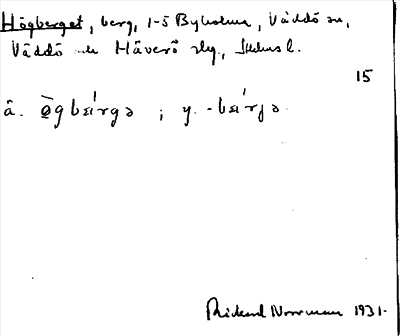 Högberget, berg, 1-5 Byholma, Väddö sn,
Väddö och Häverö skg., Sthlms l.
15
å. ö̀gbειrgə ; y. -bειrjə.
Rickard Norrman 1931.